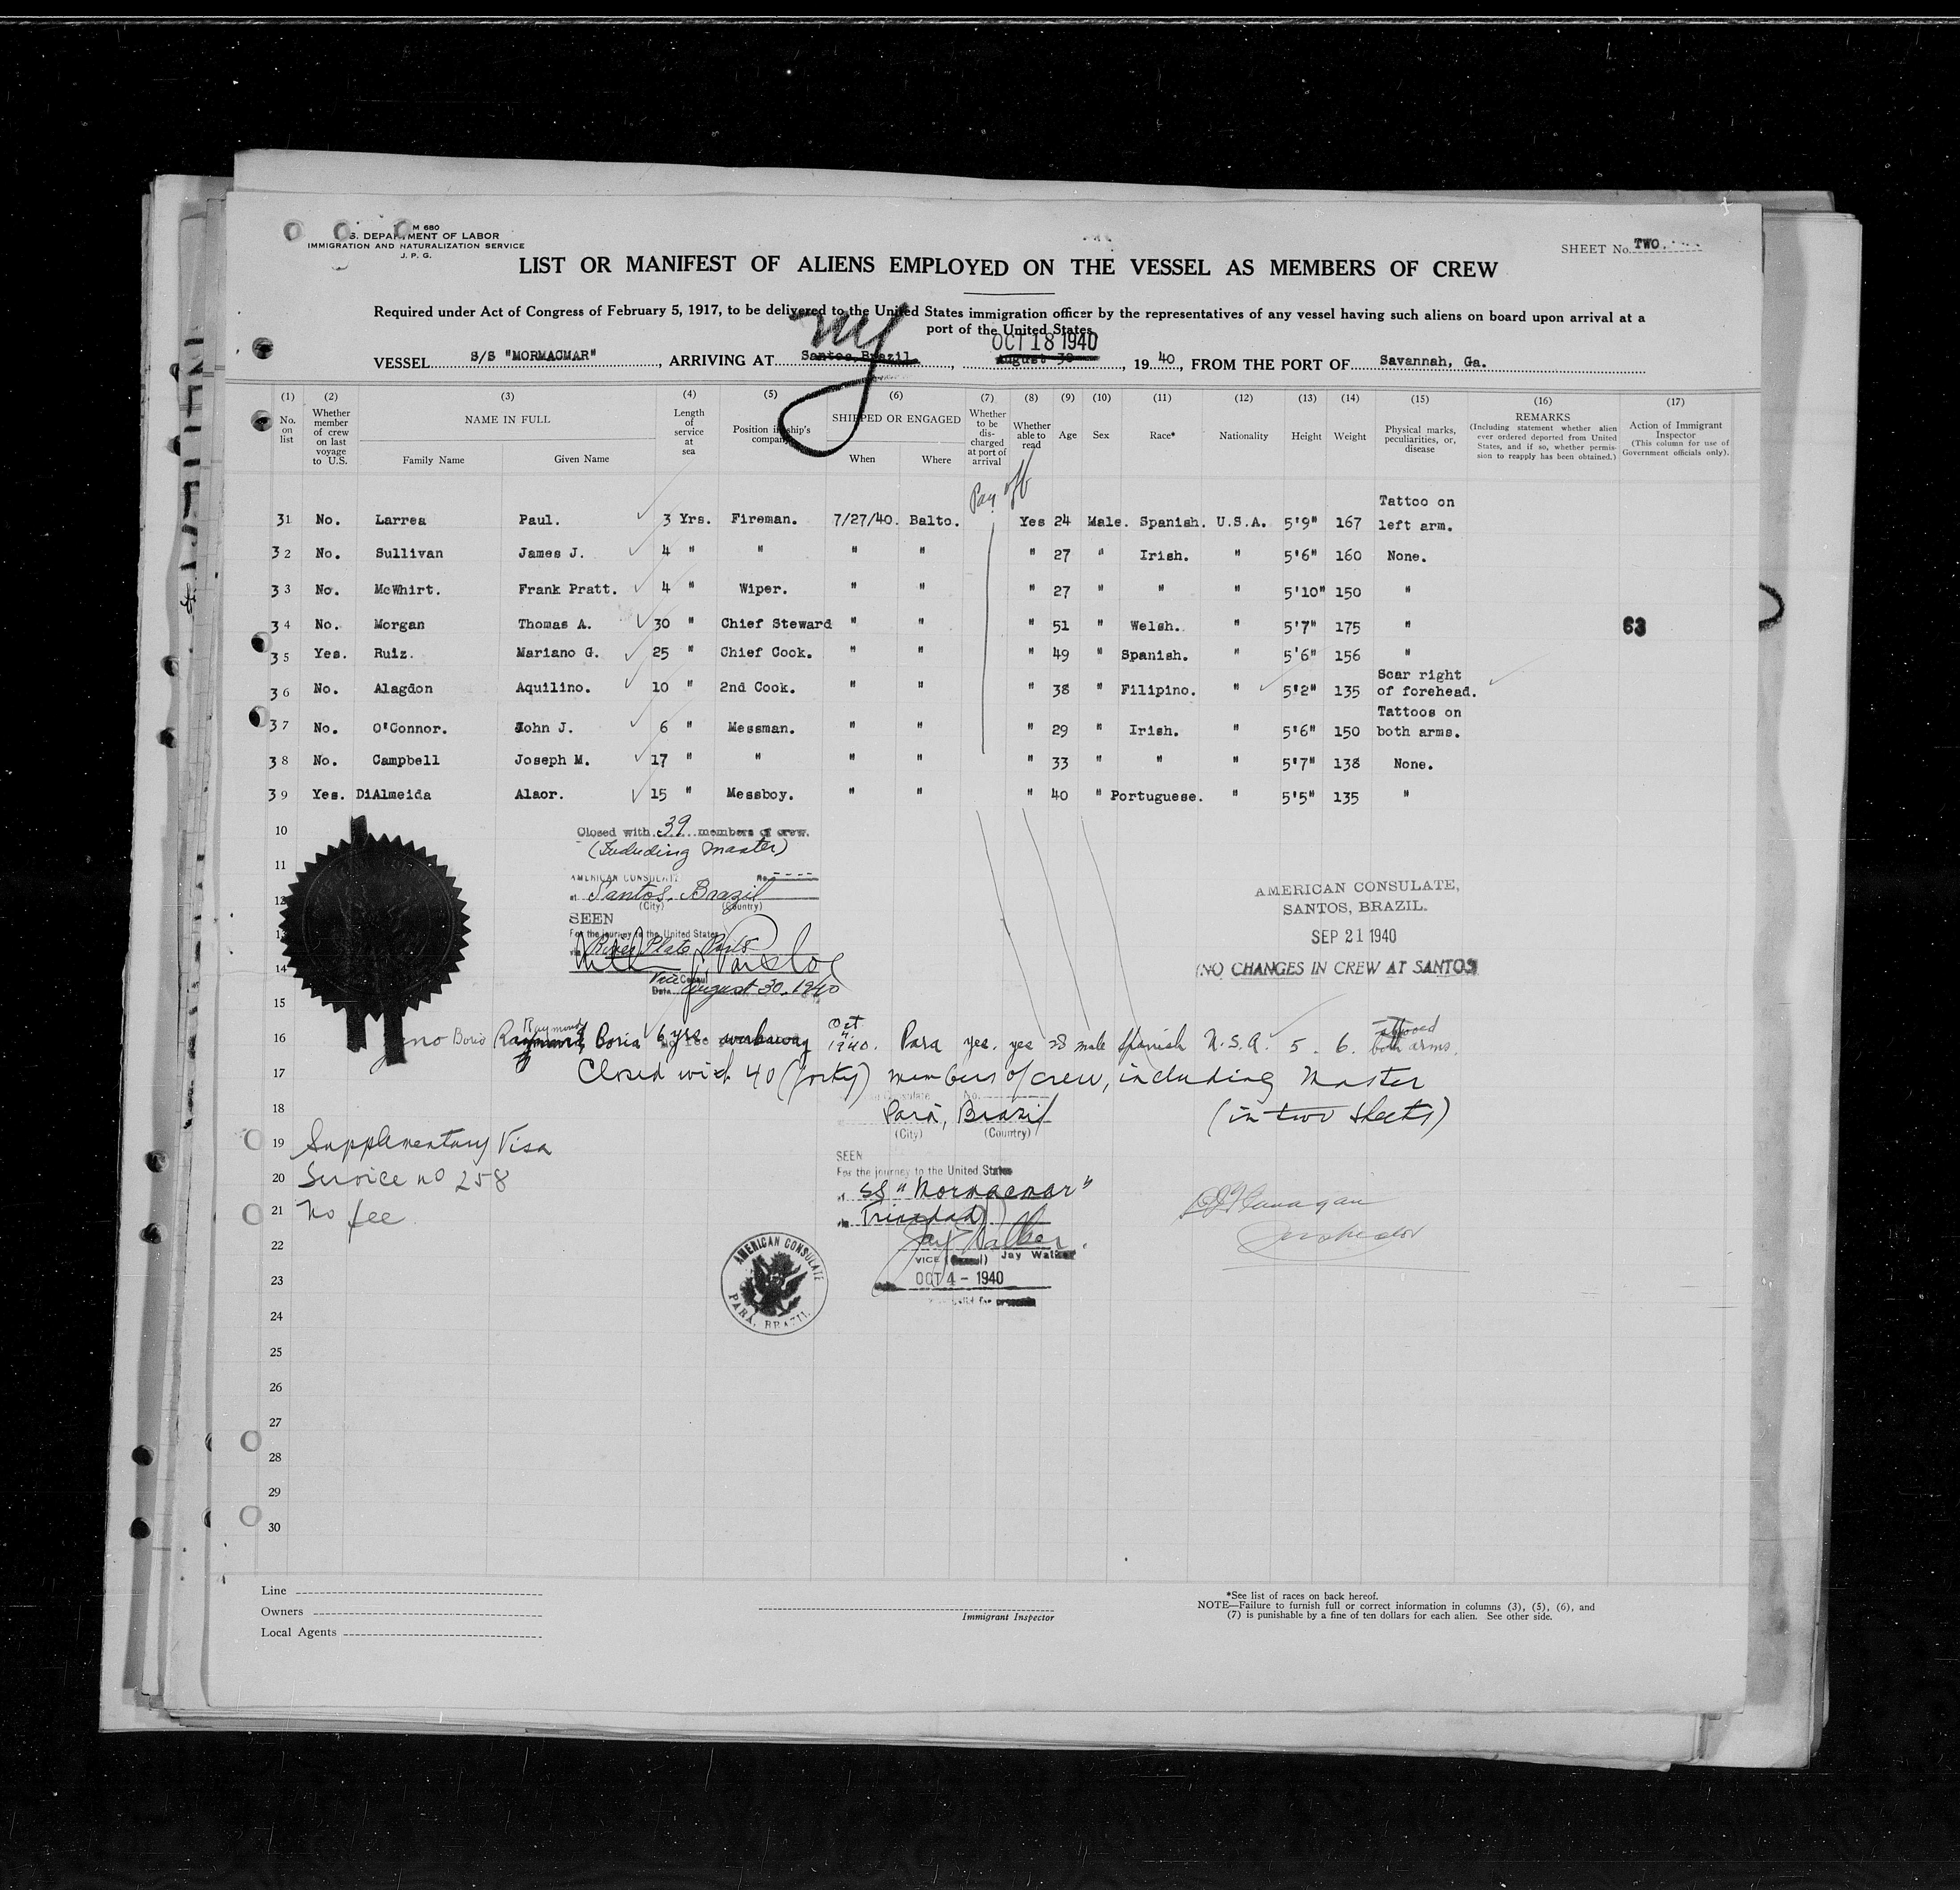 M 680
S. DEPARTMENT OF LABOR
IMMIGRATION AND NATURALIZATION SERVICE
J. P. G.
SHEET No. TWO.
LIST OR MANIFEST OF ALIENS EMPLOYED ON THE VESSEL AS MEMBERS OF CREW
Required under Act of Congress of February 5, 1917, to be delivered to the United States immigration officer by the representatives of any vessel having such aliens on board upon arrival at a
port of the United States
ny
OCT 18 1940
VESSEL S/S "MORMACMAR", ARRIVING AT Santos, Brazil, August 30, 1940, FROM THE PORT OF Savannah, Ga.
(1) (2) (3) (4) (5) (6) (7) (8) (9) (10) (11) (12) (13) (14) (15) (16) (17)
No. on list
Whether member of crew on last voyage to U.S.
NAME IN FULL
Family Name
Given Name
Length of service at sea
Position in ship's company
SHIPPED OR ENGAGED
When
Where
Whether to be discharged at port of arrival
Whether able to read
Age
Sex
Race*
Nationality
Height
Weight
Physical marks, peculiarities, or, disease
REMARKS
(Including statement whether alien ever ordered deported from United States, and if so, whether permission to reapply has been obtained.)
Action of Immigrant Inspector
(This column for use of Government officials only).
Pay off
31 No. Larrea Paul. 3 Yrs. Fireman. 7/27/40. Balto. Yes 24 Male. Spanish. U.S.A. 5'9" 167 Tattoo on left arm.
32 No. Sullivan James J. 4 " " " " " 27 " Irish. " 5'6" 160 None.
33 No. McWhirt. Frank Pratt. 4 " Wiper. " " " 27 " " " 5'10" 150 "
34 No. Morgan Thomas A. 30 " Chief Steward " " " 51 " Welsh. " 5'7" 175 " 63
35 Yes. Ruiz. Mariano G. 25 " Chief Cook. " " " 49 " Spanish. " 5'6" 156 "
36 No. Alagdon Aquilino. 10 " 2nd Cook. " " " 38 " Filipino. " 5'2" 135 Scar right of forehead.
37 No. O'Connor. John J. 6 " Messman. " " " 29 " Irish. " 5'6" 150 Tattoos on both arms.
38 No. Campbell Joseph M. 17 " " " " " 33 " " " 5'7" 138 None.
39 Yes. DiAlmeida Alaor. 15 " Messboy. " " " 40 " Portuguese. " 5'5" 135 "
10
Closed with 39 members of crew.
(Including Master)
11
AMERICAN CONSULATE No.
12
at Santos, Brazil
(City) (Country)
SEEN
13
For the journey to the United States
via River Plate Ports
14
Vice Consul
Date August 30, 1940
15
AMERICAN CONSULATE,
SANTOS, BRAZIL.
SEP 21 1940
(NO CHANGES IN CREW AT SANTOS)
16 Borio Raymond Boria 6 yrs Oct 4 1940. Para yes. yes 28 male Spanish U.S.A. 5. 6. tattooed both arms.
17 Closed with 40 (forty) members of crew, including Master
18
(in two sheets)
No.
Pará, Brazil
(City) (Country)
19 Supplementary Visa
SEEN
For the journey to the United States
20 Service no 258
SS "Mormacmar"
21 No fee
Trinidad
Jay Walker
22
VICE (Consul) Jay Walker
23
OCT 4 - 1940
AMERICAN CONSULATE
PARA, BRAZIL
Flanagan
Inspector
24
25
26
27
28
29
30
Line
Owners
Local Agents
Immigrant Inspector
*See list of races on back hereof.
NOTE—Failure to furnish full or correct information in columns (3), (5), (6), and
(7) is punishable by a fine of ten dollars for each alien. See other side.